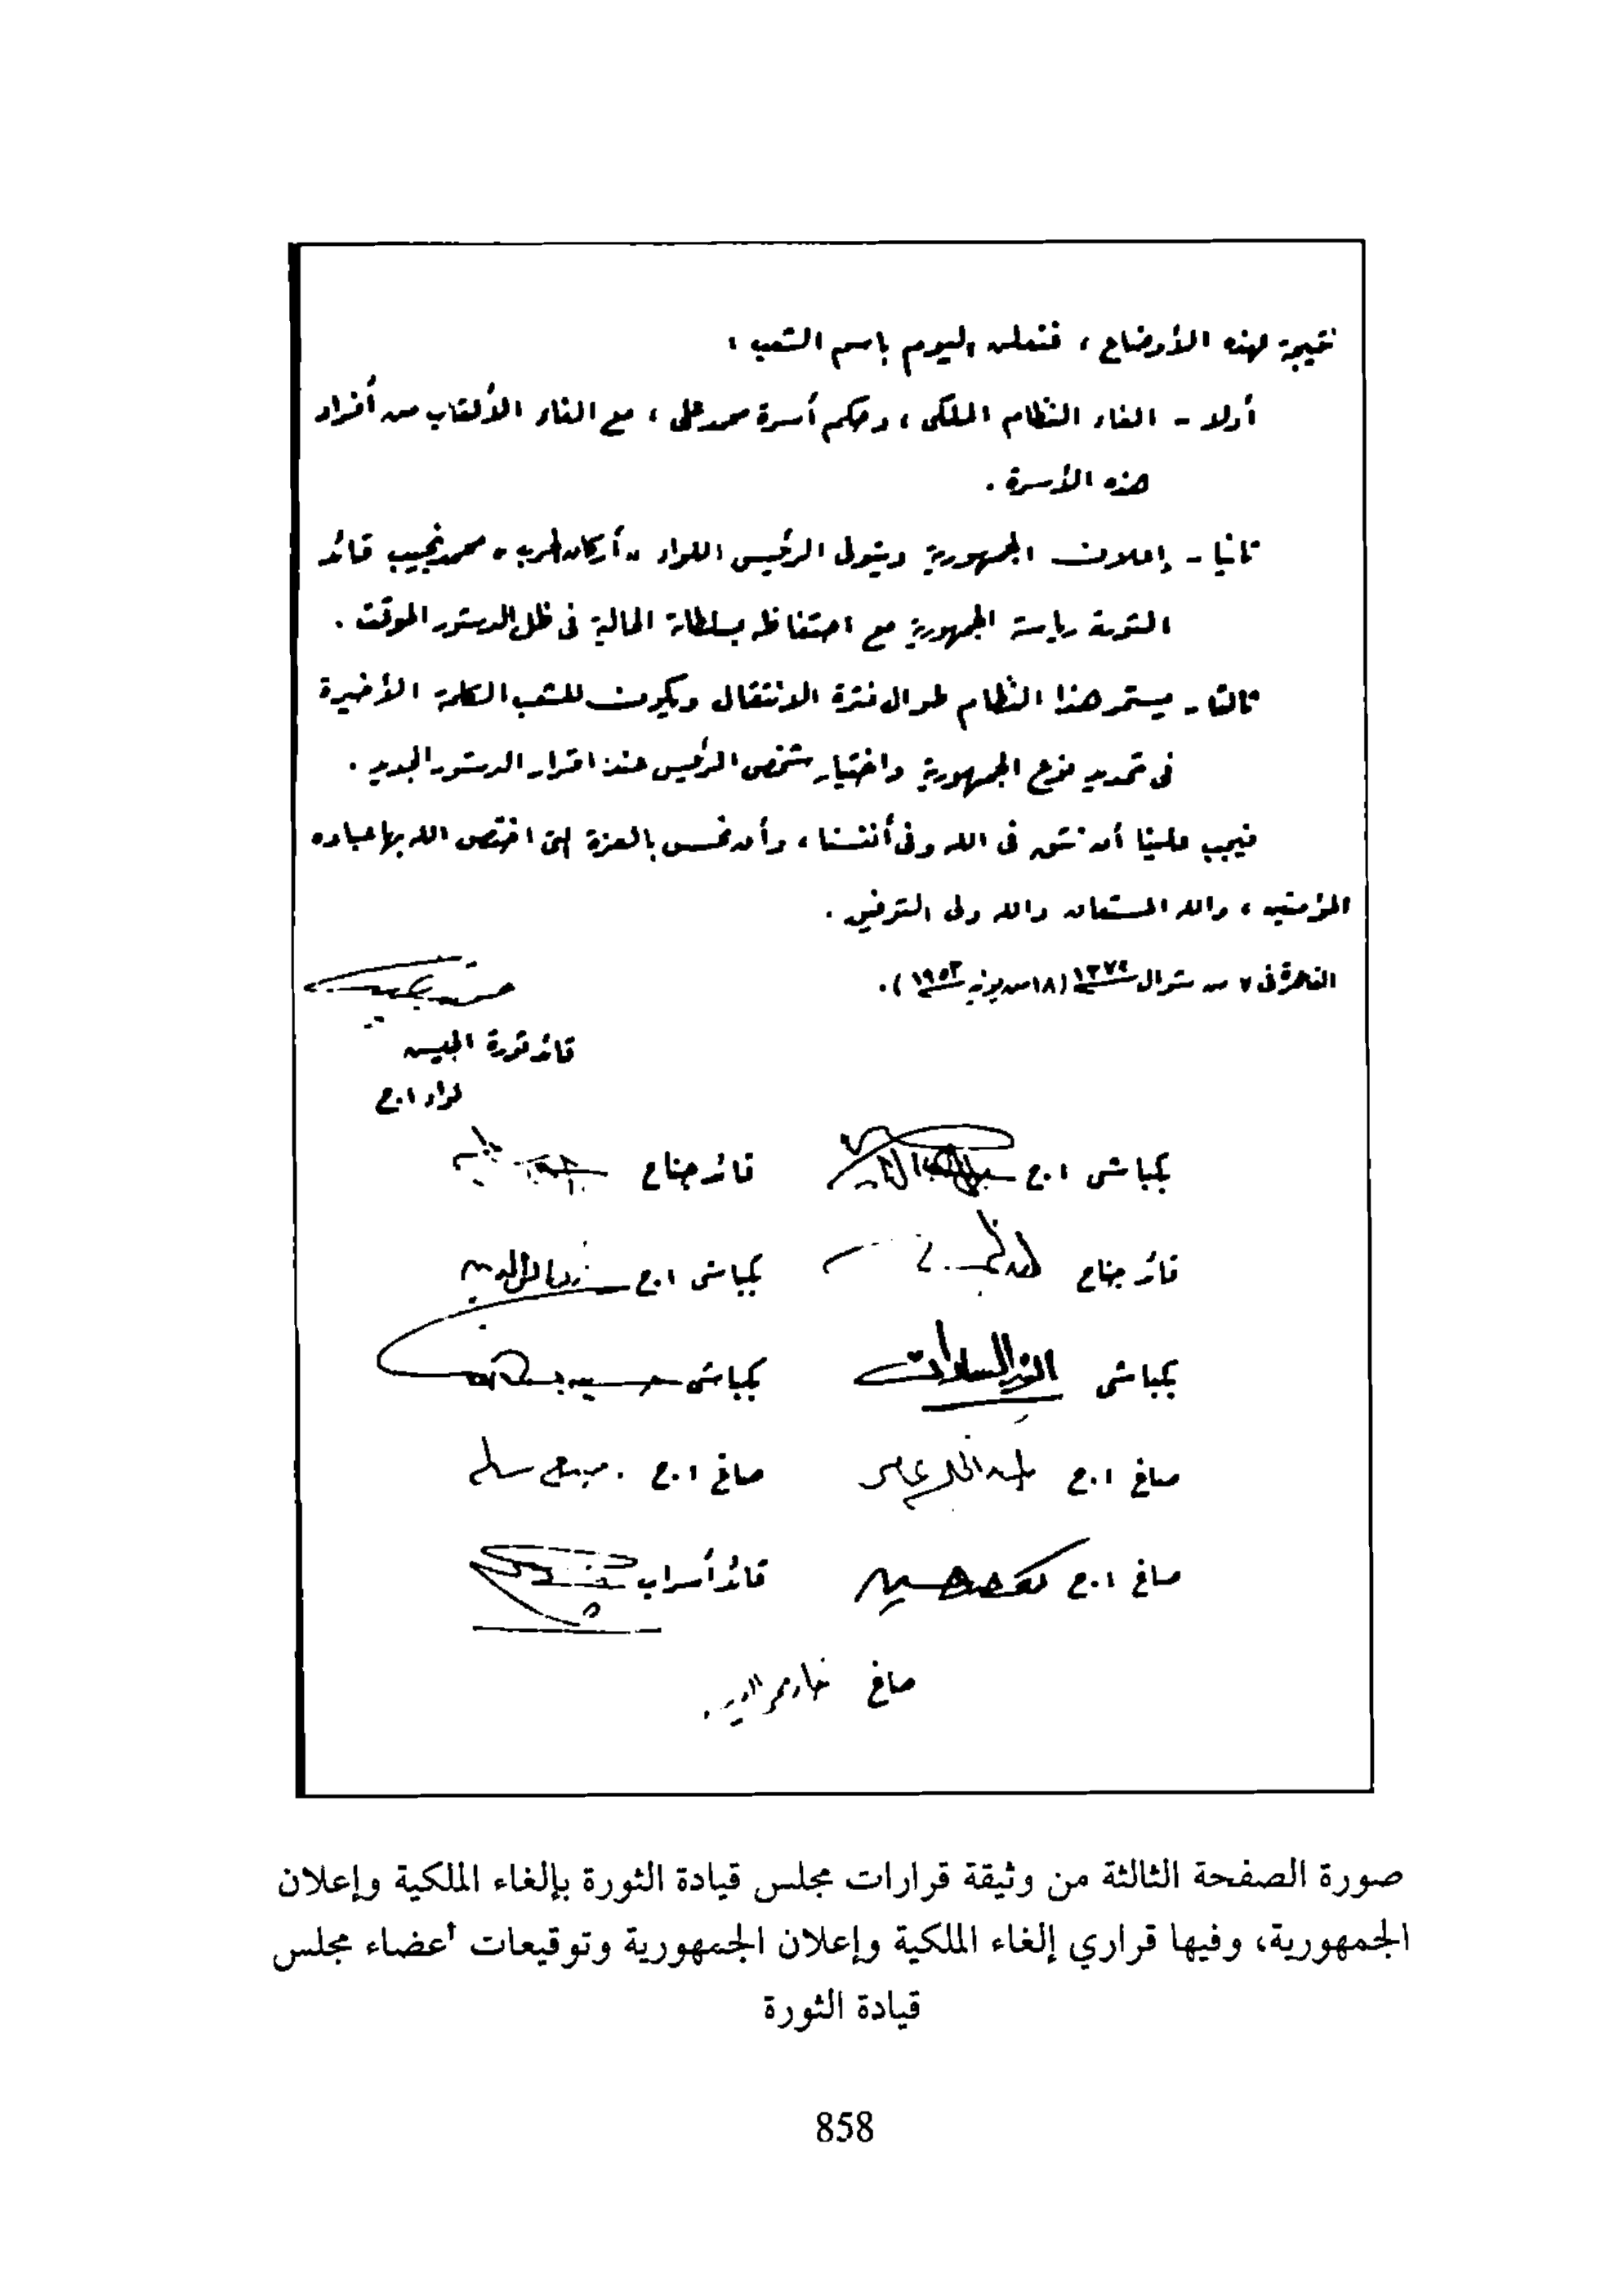 نتيجة لهذه الأوضاع ، فنعلن اليوم باسم الشعب :
أولا - الغاء النظام الملكى ، وحكم أسرة محمد على ، مع الغاء الألقاب من أفراد
هذه الأسرة .
ثانيا - إعلان الجمهورية ويتولى الرئيس اللواء " أركان الحرب " محمد نجيب قائد
الثورة رياسة الجمهورية مع احتفاظه بسلطاته الحالية فى ظل الدستور الموقت .
ثالثا - يستمر هذا النظام طوال فترة الانتقال ويكون للشعب الكلمة الأخيرة
فى تحديد نوع الجمهورية واختيار شخص الرئيس عند اقرار الدستور الجديد .
فيجب علينا أن نثق فى الله وفى أنفسنا ، وأن نحس بالعزة التى اختص الله بها عباده
المؤمنين ، والله المستعان والله ولى التوفيق .
القاهرة فى ٧ من شوال ١٣٧٢ ( ١٨ من يونيه ١٩٥٣ ) .
قائد ثورة الجيش
لواء ا.ح
بكباشى ا.ح
قائد جناح
قائد جناح
بكباشى ا.ح زكريا محيى الدين
بكباشى أنور السادات
بكباشى حسين
صاغ ا.ح عبد الحكيم عامر
صاغ ا.ح صلاح سالم
صاغ ا.ح كمال الدين حسين
قائد أسراب
صاغ خالد محيى الدين
صورة الصفحة الثالثة من وثيقة قرارات مجلس قيادة الثورة بإلغاء الملكية وإعلان
الجمهورية، وفيها قراري إلغاء الملكية وإعلان الجمهورية وتوقيعات أعضاء مجلس
قيادة الثورة
858